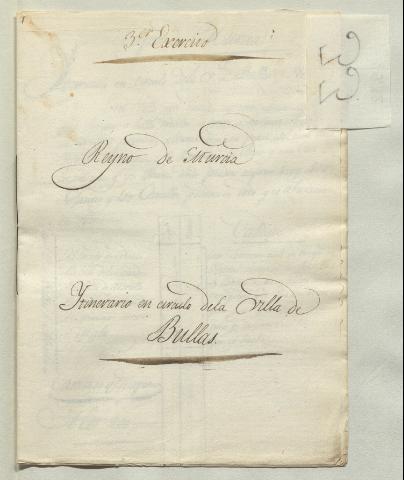 3.er Exercito
Reyno de Murcia
Ytinerario en circulo dela Villa de
Bullas.